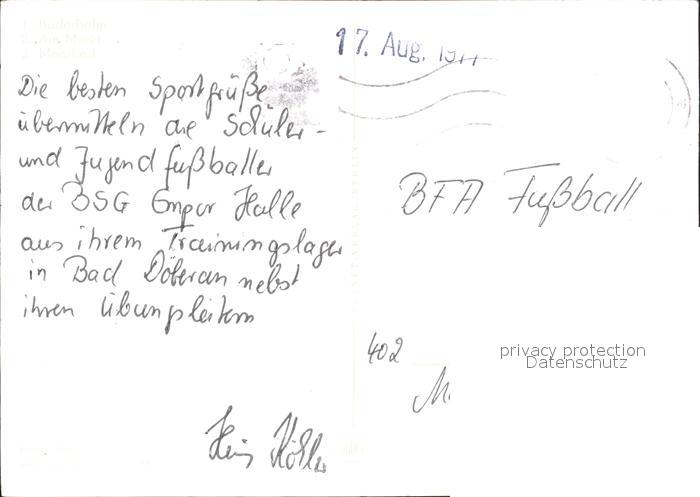 1. Bäderbahn
2. Am Markt
17. Aug. 1977
Die besten Sportgrüße
übermitteln die Schüler-
und Jugendfußballer
der BSG Empor Halle
aus ihrem Trainingslager
in Bad Doberan nebst
ihren Übungsleitern
Heinz Köhler
BFA Fußball
402
M.
privacy protection
Datenschutz